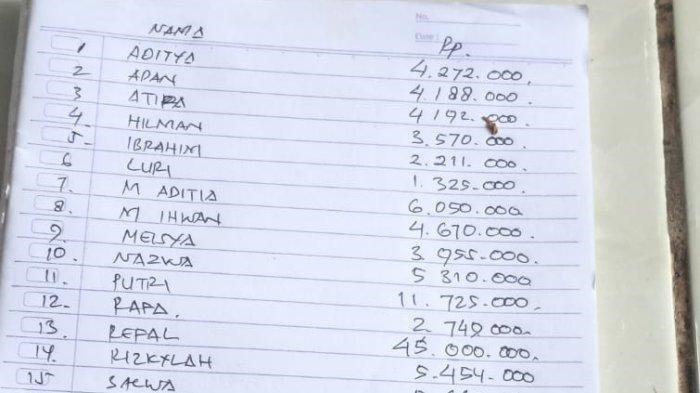 No.
Date :
NAMA Rp.
1 ADITYA 4.272.000,
2 APAN 4.188.000
3 ATIPA 4 192.000
4. HILMAN 3.570.000
5- IBRAHIM 2.211.000
6 LURI 1.325-000.
7. M ADITIA 6.050.000
8. M IHWAN 4.670.000
9. MEISYA 3.955-000.
10. NAZWA 5 310.000
11. PUTRI 11.725-000.
12- RAPA. 2.749 000.
13. REPAL 45.000.000.
14. RIZKYLAH 5.454-000
15 SALWA